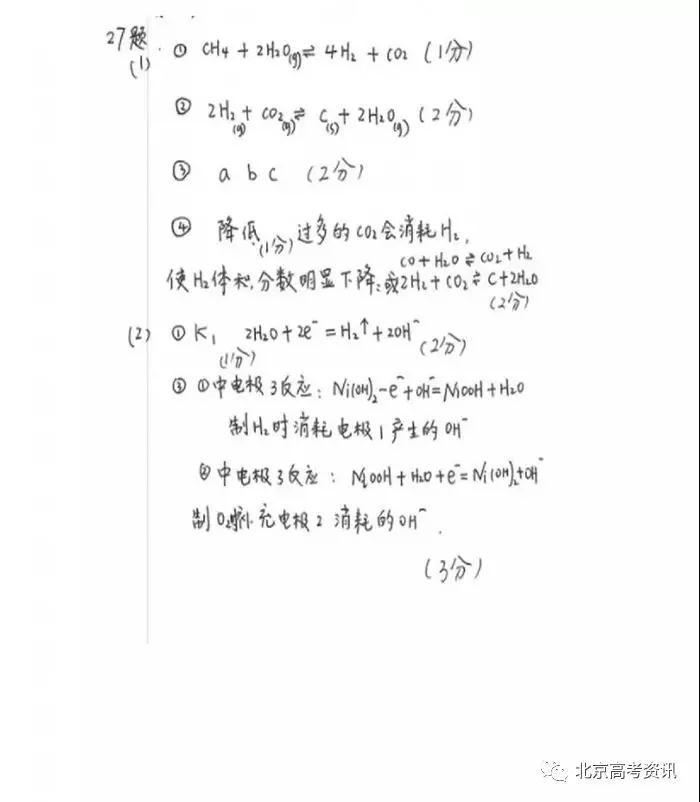 27题.
(1) ① CH₄ + 2H₂O(g) ⇌ 4H₂ + CO₂ (1分)
② 2H₂(g) + CO₂(g) ⇌ C(s) + 2H₂O(g) (2分)
③ a b c (2分)
④ 降低.(1分) 过多的CO₂会消耗H₂,
CO + H₂O ⇌ CO₂ + H₂
使H₂体积分数明显下降; 或2H₂ + CO₂ ⇌ C + 2H₂O
(2分)
(2) ① K₁ (1分) 2H₂O + 2e⁻ = H₂↑ + 2OH⁻ (2分)
③ ①中电极3反应: Ni(OH)₂ - e⁻ + OH⁻ = NiOOH + H₂O
制H₂时消耗电极1产生的OH⁻
②中电极3反应: NiOOH + H₂O + e⁻ = Ni(OH)₂ + OH⁻
制O₂时补充电极2消耗的OH⁻.
(3分)
北京高考资讯